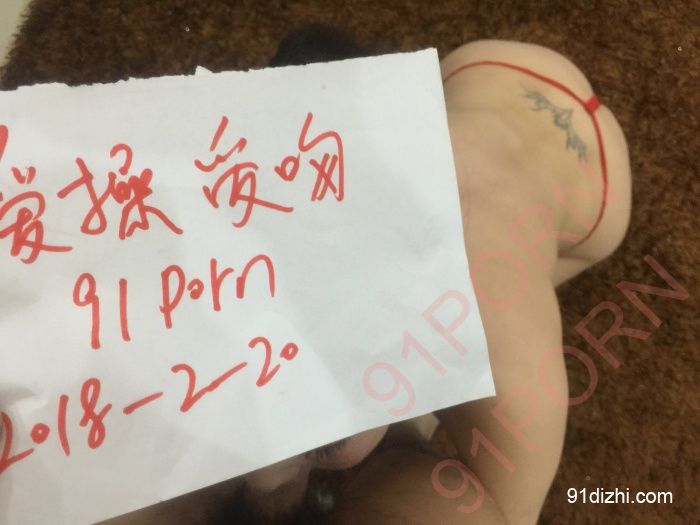 爱操 爱吻
91 porn
2018-2-20
91PORN
91PORN
91dizhi.com